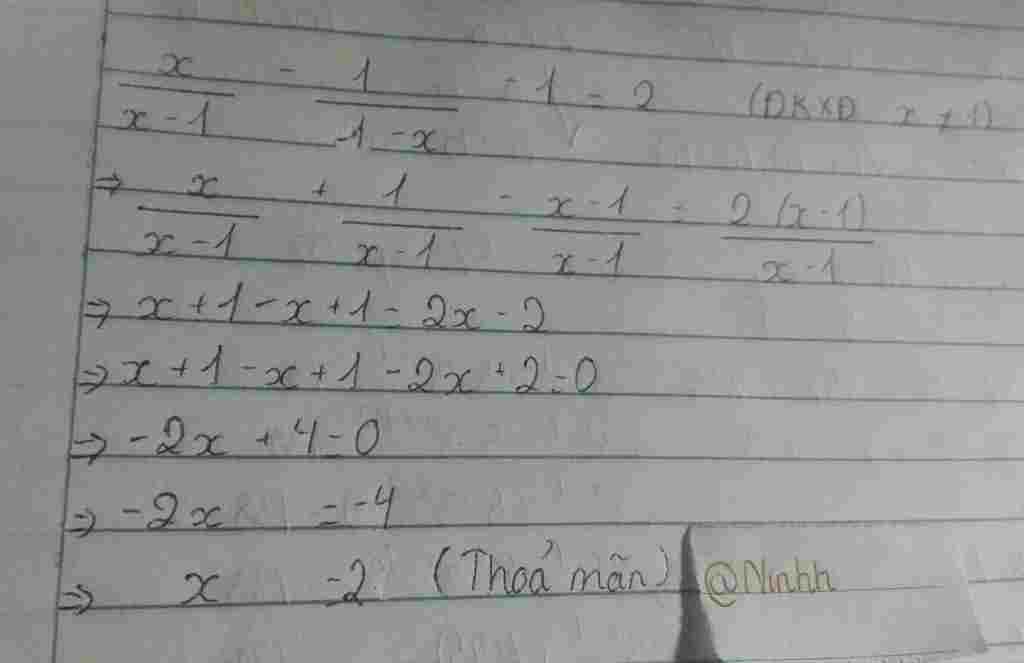 x/(x-1) - 1/(1-x) - 1 = 2 (ĐKXĐ x ≠ 1)
⇒ x/(x-1) + 1/(x-1) - (x-1)/(x-1) = 2(x-1)/(x-1)
⇒ x + 1 - x + 1 = 2x - 2
⇒ x + 1 - x + 1 - 2x + 2 = 0
⇒ -2x + 4 = 0
⇒ -2x = -4
⇒ x = 2 (Thoả mãn) @Ninhh